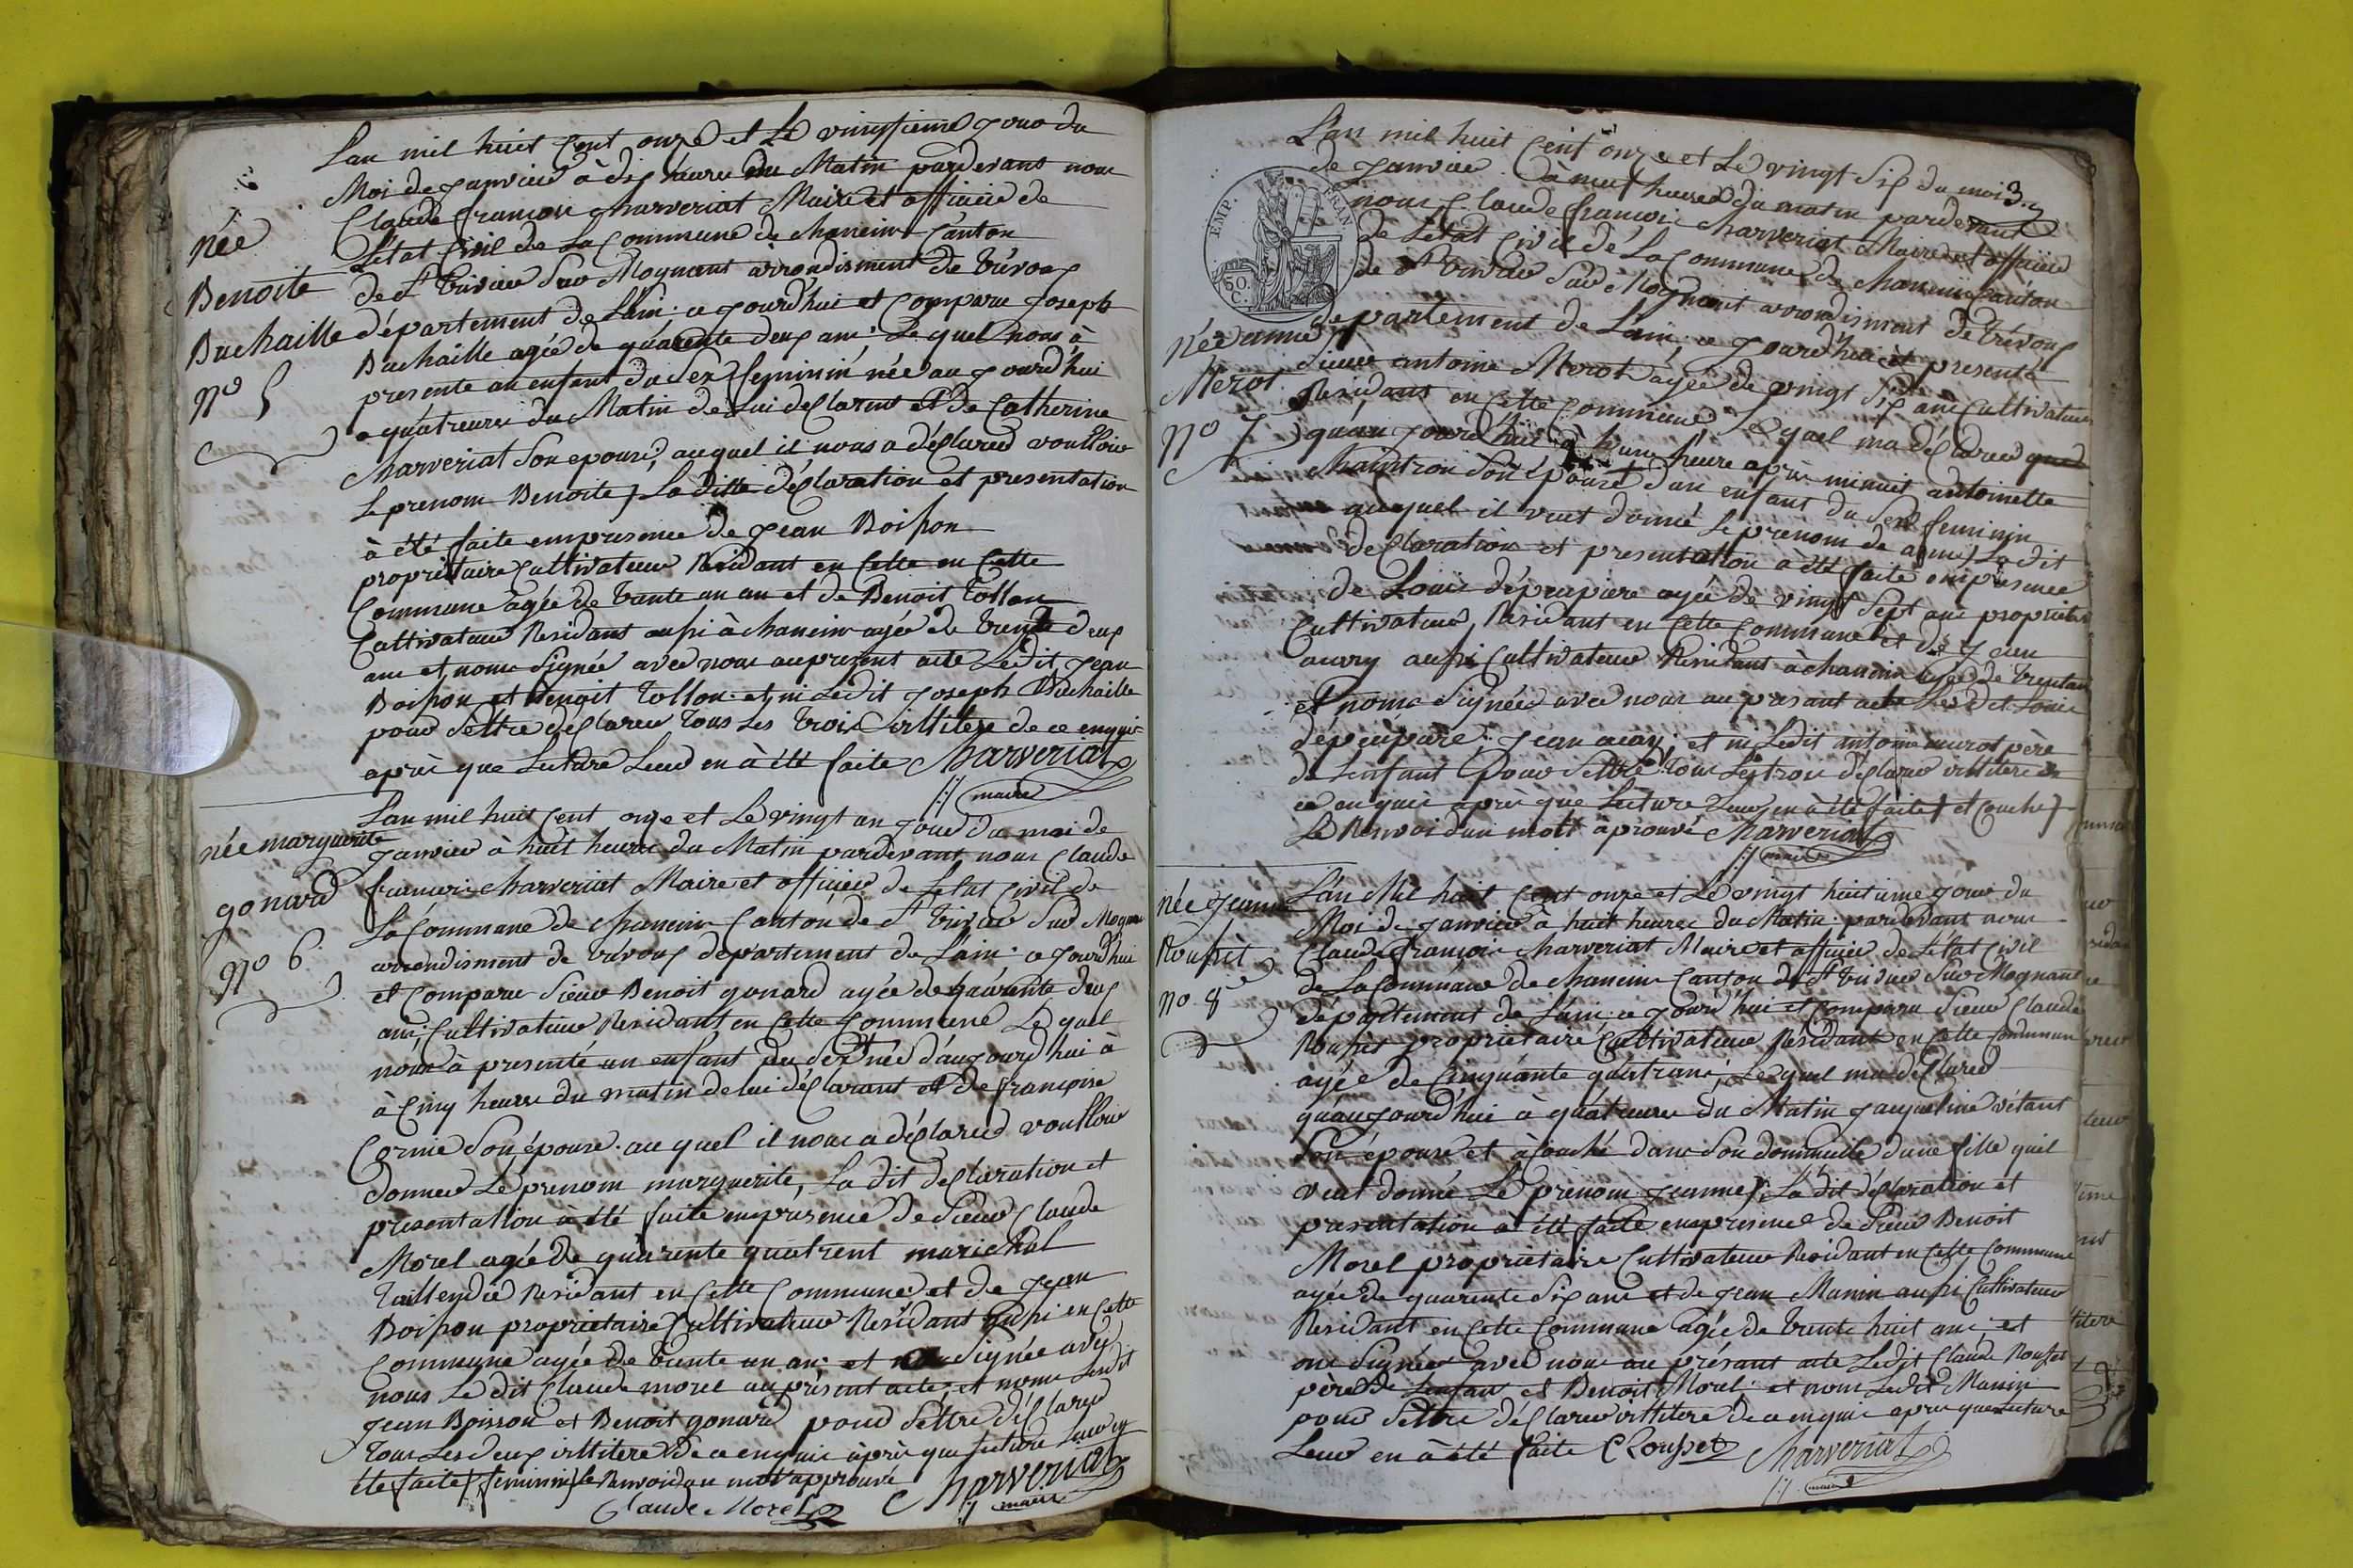 Lan mil huit Cent onze et Le vingtieme jour du
Moi de janvier à dix heures du Matin pardevant nous
Claude françois Charveriat Maire et officier de
Létat Civil de La Commune de Chanein Canton
née
Benoite
Buchaille
No 5
de St trivier Sur Mognant arrondisment de trévoux
département de Lain ce jourdhui et Comparu Joseph
Buchaille agée de quarente deux ans Le quel nous à
presente un enfant du Sex feminin née au jourdhui
a quatreures du Matin de Lui déClarant et de Catherine
Charveriat Son epouse, auquel il nous a déClared voulloir
Le prenom Benoite, La ditte déClaration et presentation
à été faite empresence de jean Boisson
propriétaire Cultivateur Residant en Cette en Cette
Commune agée de trante un an et de Benoit Tollon
Cultivateur Residant aussi à Chanein agée de trente deux
ans et nome Signée aved nous auprezent acte Ledit jean
Boisson et Benoit Tollon et ni Ledit joseph Buchaille
pour Settre déClared tous Les trois illitere de ce enquis
après que Lecture Leud en à été faite Charveriat
maire
Lan mil huit Cent onze et Le vingt un jour du moi de
née marguerite
gonard
No 6
janvier à huit heures du Matin pardevant nous Claude
francois Charveriat Maire et officier de Letat Civil de
La Commune de Chanein Canton de St trivier Sur Mognan
arrondisment de trévoux département de Lain ce jourdhui
et Comparu Sieur Benoit gonard agée de quarente deux
ans, Cultivateur Residant en Cette Commune Le quel
nous à presenté un enfant du Sex née daujourdhui à
à Cinq heures du matin de lui déClarant et de françoise
Cormie Son épouse auquel il nous a déClared voulloir
donner Le prenom marguerite, La dit deClaration et
presentation à été faite empresence de Sieur Claude
Morel agée de quarente quatrent marichal
taillendié Residant en Cette Commune et de jean
Boisson propriétaire Cultivateur Residant aussi en Cette
Commune agée de trente un an et Signée aveq
nous Le dit Claude morel au présent acte, et nome Ledit
jean Boisson et Benoit gonard pour Settre déClared
tous Les deux illitere de ce enquis après que lecture Leur en
éte faite, feminin, le Renvoi dun mot approuvé Charveriat
maire
Claude Morel
3
EMP. FRAN
50. C.
Lan mil huit Cent onze et Le vingt Six du moi
de janvier à neuf heures du matin pardevant
nous Claude françois Charveriat Maire et officier
de Létat Civil de La Commune de Chanein Canton
de St trivier Sur Mognant arrondisment de trévoux
departement de Lain, ce jourdhui et presenté
née anne
Merot
No 7
Sieur antoine Merot agée de vingt Six ans Cultivateur
Residant en Cette Commune Lequel ma déClared que
quau jourdhui à hune heure après minuit antoinette
Chaintron Son épouse dun enfant du Sex feminin
auquel il veut donné Le prénom de anne, La dit
deClaration et presentation à été faite empresence
de Louis dépeupiere agée de vingt Sept ans proprietere
Cultivateur, Residant en Cette Commune et de jean
auvry aussi Cultivateur Residant à Chanein agée de trentans
et nome Signée aved nous au present acte Ledit Louis
dépeupiere, jean auvry, et ni Ledit antoine murot père
de Lenfant pour Settre tous Les trois déClared illitere de
ce enquis après que Lecture Leur en à été faite, et Couche,
Le Renvoi dun mott aprouvé Charveriat
maire
Lan Mil huit Cent onze et Le vingt huitieme jour du
née jeanne
Rousset
No 8
Moi de janvier à huit heures du Matin pardevant nous
Claude françois Charveriat Maire et officier de Létat Civil
de La Commune de Chanein Canton de St trivier Sur Mognant
département de Lain ce jourdhui et Comparu Sieur Claude
Rousset propriétaire Cultivateur Residant en Cette Commune
agée de Cinquante quatrans, Lequel ma déClared
quaujourdhui à quatreures du Matin jaqueline vétant
Son épouse et àCouché dans Son dommicille dune fille quil
veut donné Le prénom jeanne, La dit déClaration et
presentation à été faite empresence de Sieur Benoit
Morel propriétaire Cultivateur Residant en Cette Commune
agée de quarente Six ans et de jean Manin aussi Cultivateur
Residant en Cette Commune agée de trente huit ans, et
ons Signée aved nous au présant acte Ledit Claude Rousset
père de Lenfant et Benoit Morel et nom Ledit Manin
pour Settre déClared illitere de ce enquis apres que Lecture
Leur en à été faite C Rousset Charveriat
maire